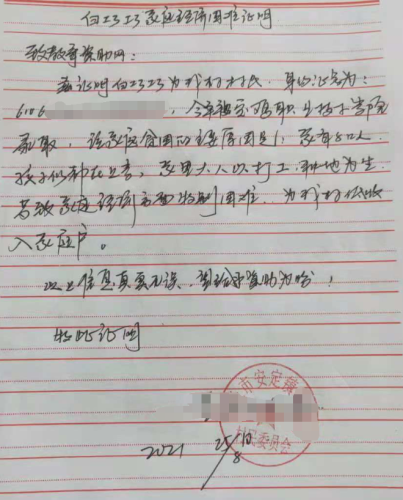 白巧巧家庭经济困难证明
致教育资助网:
兹证明白巧巧为我村村民,身份证号为:
6106 ,今年被宝鸡职业技术学院
录取,该家庭贫困的主要原因是1,家有8口人
孩子们都在上学,家里大人以打工、耕地为生
导致家庭经济方面特别困难,为我村低收
入家庭户。
以上信息真实无误,
特此证明
市安定镇
村民委员会
2021 25/8